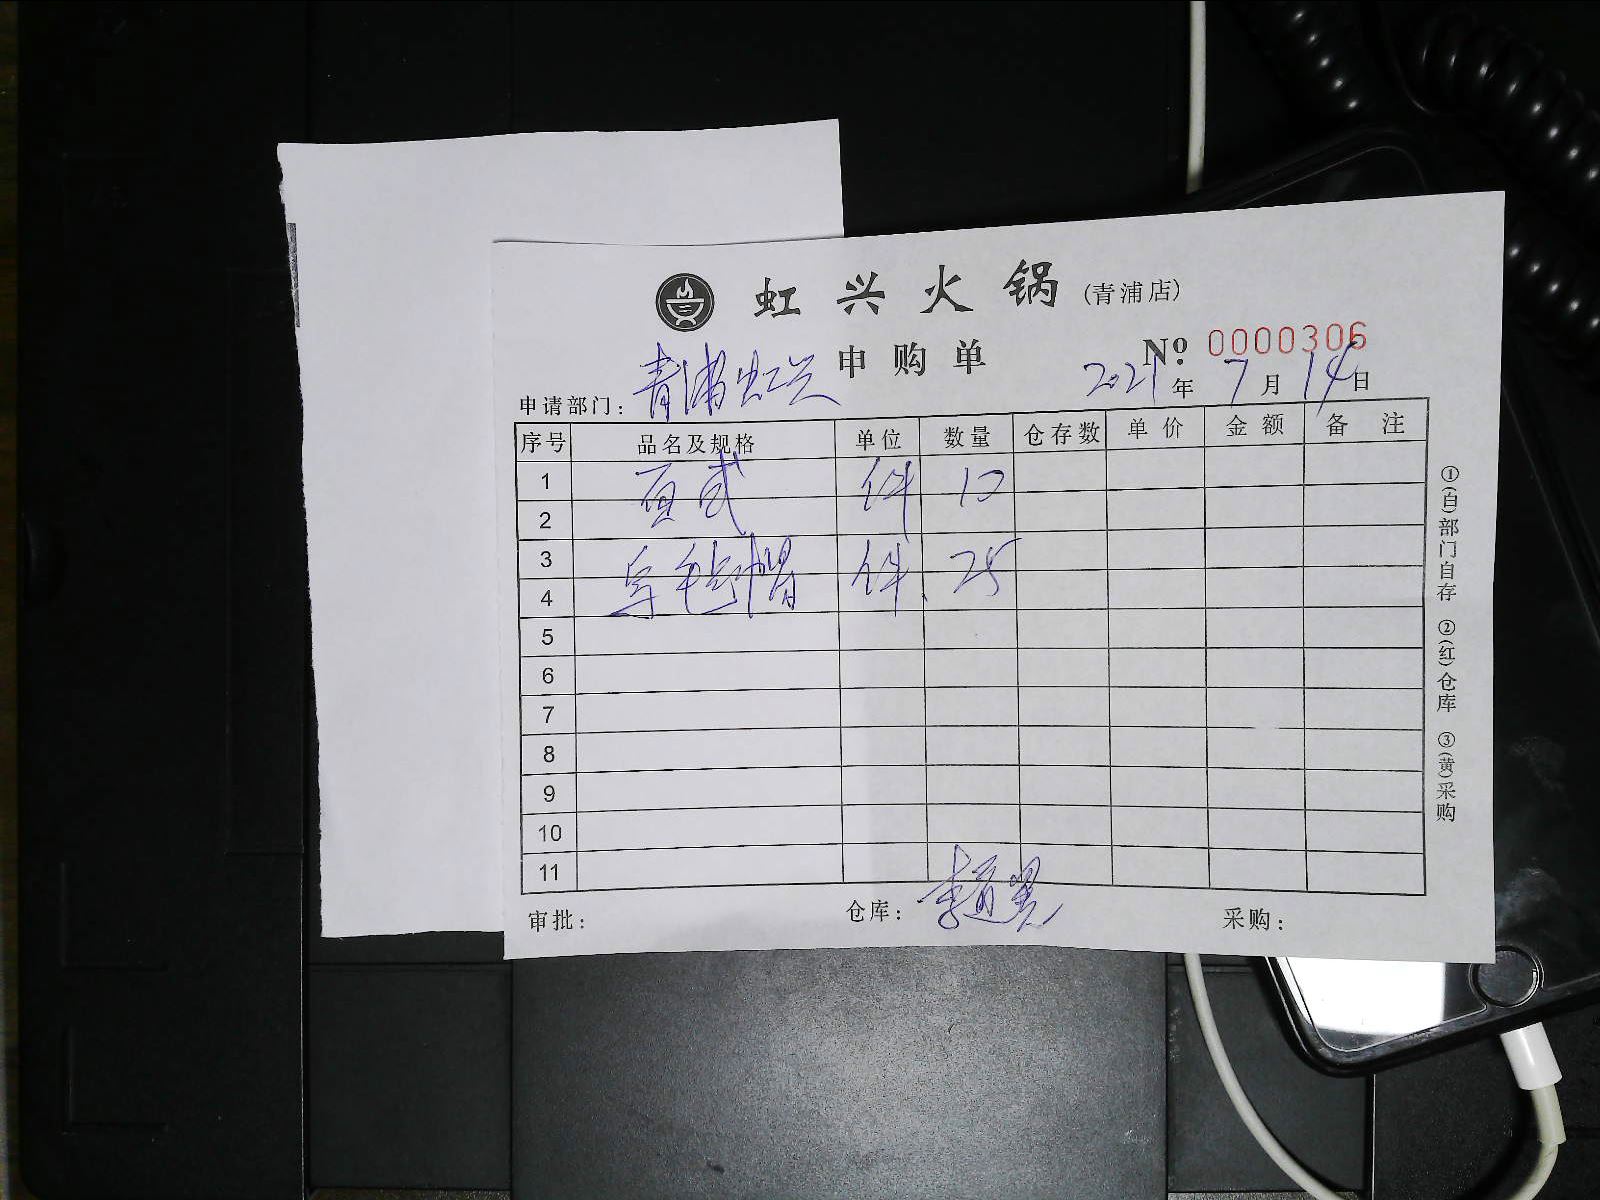 虹兴火锅(青浦店)
申购单 №: 0000306
申请部门: 青浦虹兴 2021年7月14日
序号 品名及规格 单位 数量 仓存数 单价 金额 备注
1 百威 件 10
2
3 乌毡帽 件 25
4
5
6
7
8
9
10
11
审批: 仓库: 李 采购:
①(白)部门自存 ②(红)仓库 ③(黄)采购